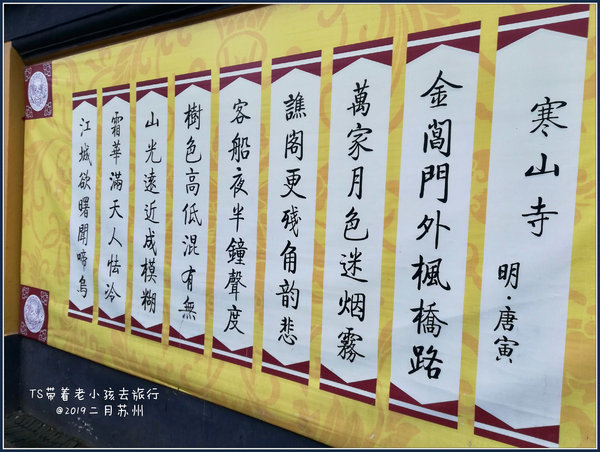 寒山寺
明·唐寅
金閶門外楓橋路
萬家月色迷烟霧
譙閣更殘角韵悲
客船夜半鐘聲度
樹色高低混有無
山光遠近成模糊
霜華滿天人怯冷
江城欲曙聞啼烏
TS带着老小孩去旅行
@2019二月苏州